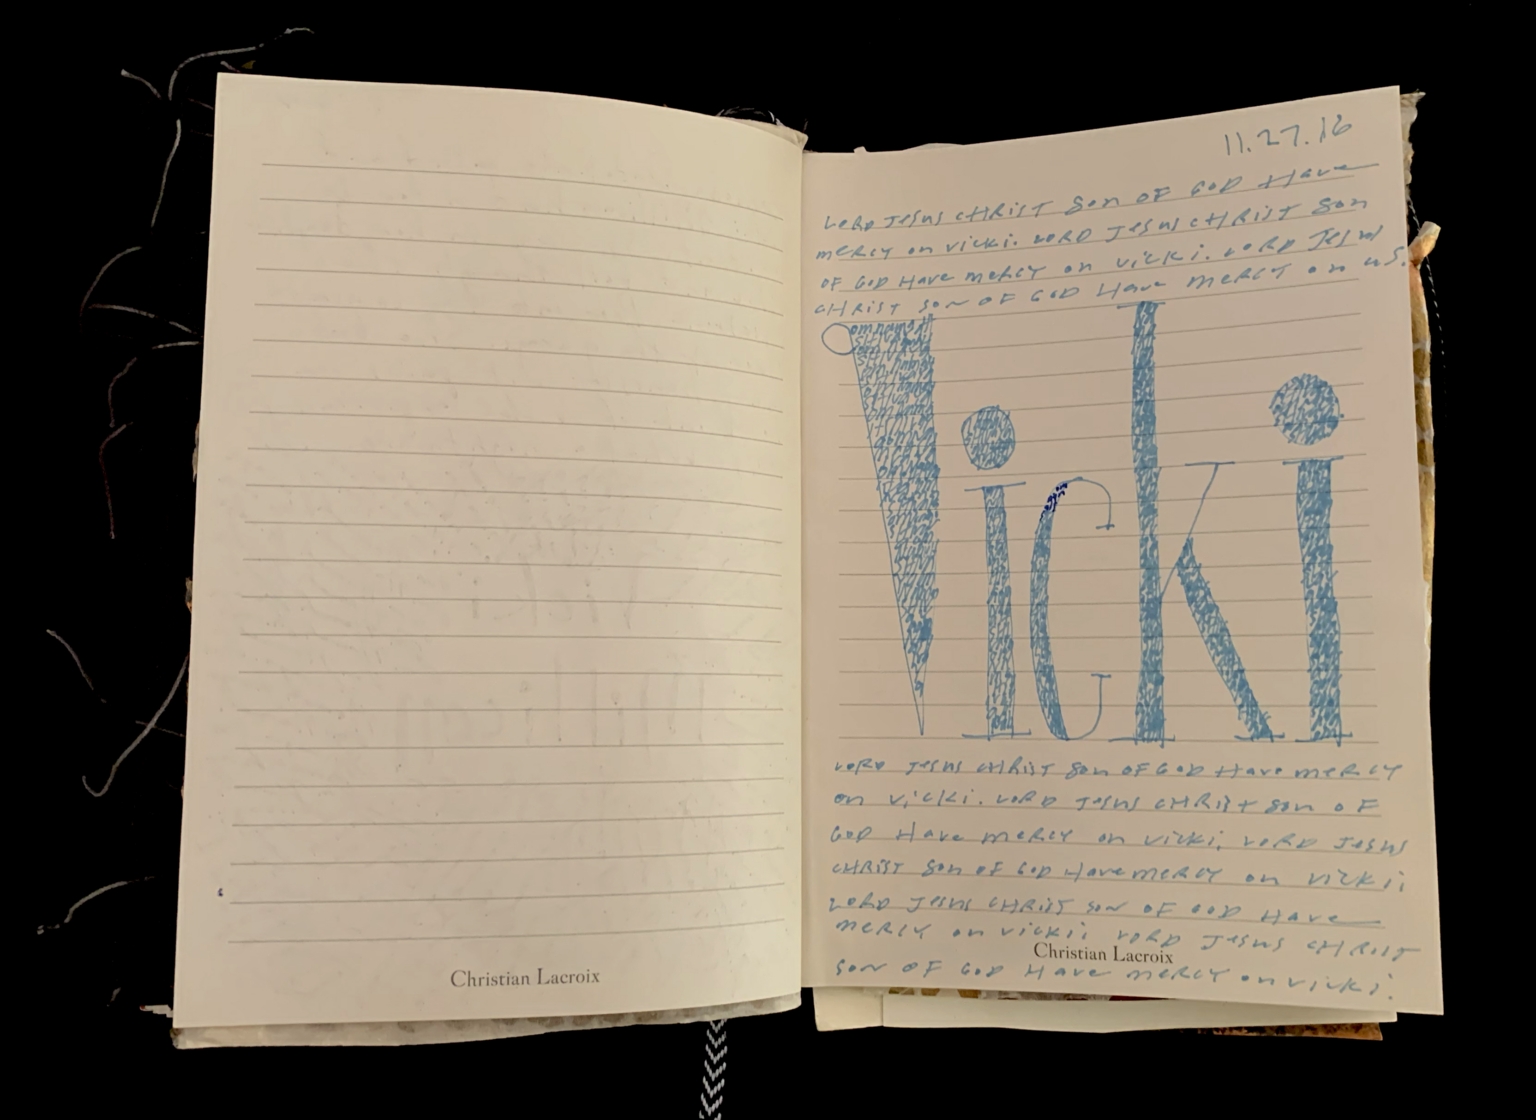 Christian Lacroix
11.27.16
LORD JESUS CHRIST SON OF GOD HAVE
MERCY ON VICKI. LORD JESUS CHRIST SON
OF GOD HAVE MERCY ON VICKI. LORD JESUS
CHRIST SON OF GOD HAVE MERCY ON US.
Vicki
LORD JESUS CHRIST SON OF GOD HAVE MERCY
ON VICKI. LORD JESUS CHRIST SON OF
GOD HAVE MERCY ON VICKI. LORD JESUS
CHRIST SON OF GOD HAVE MERCY ON VICKI;
LORD JESUS CHRIST SON OF GOD HAVE
MERCY ON VICKI; LORD JESUS CHRIST
Christian Lacroix
SON OF GOD HAVE MERCY ON VICKI.